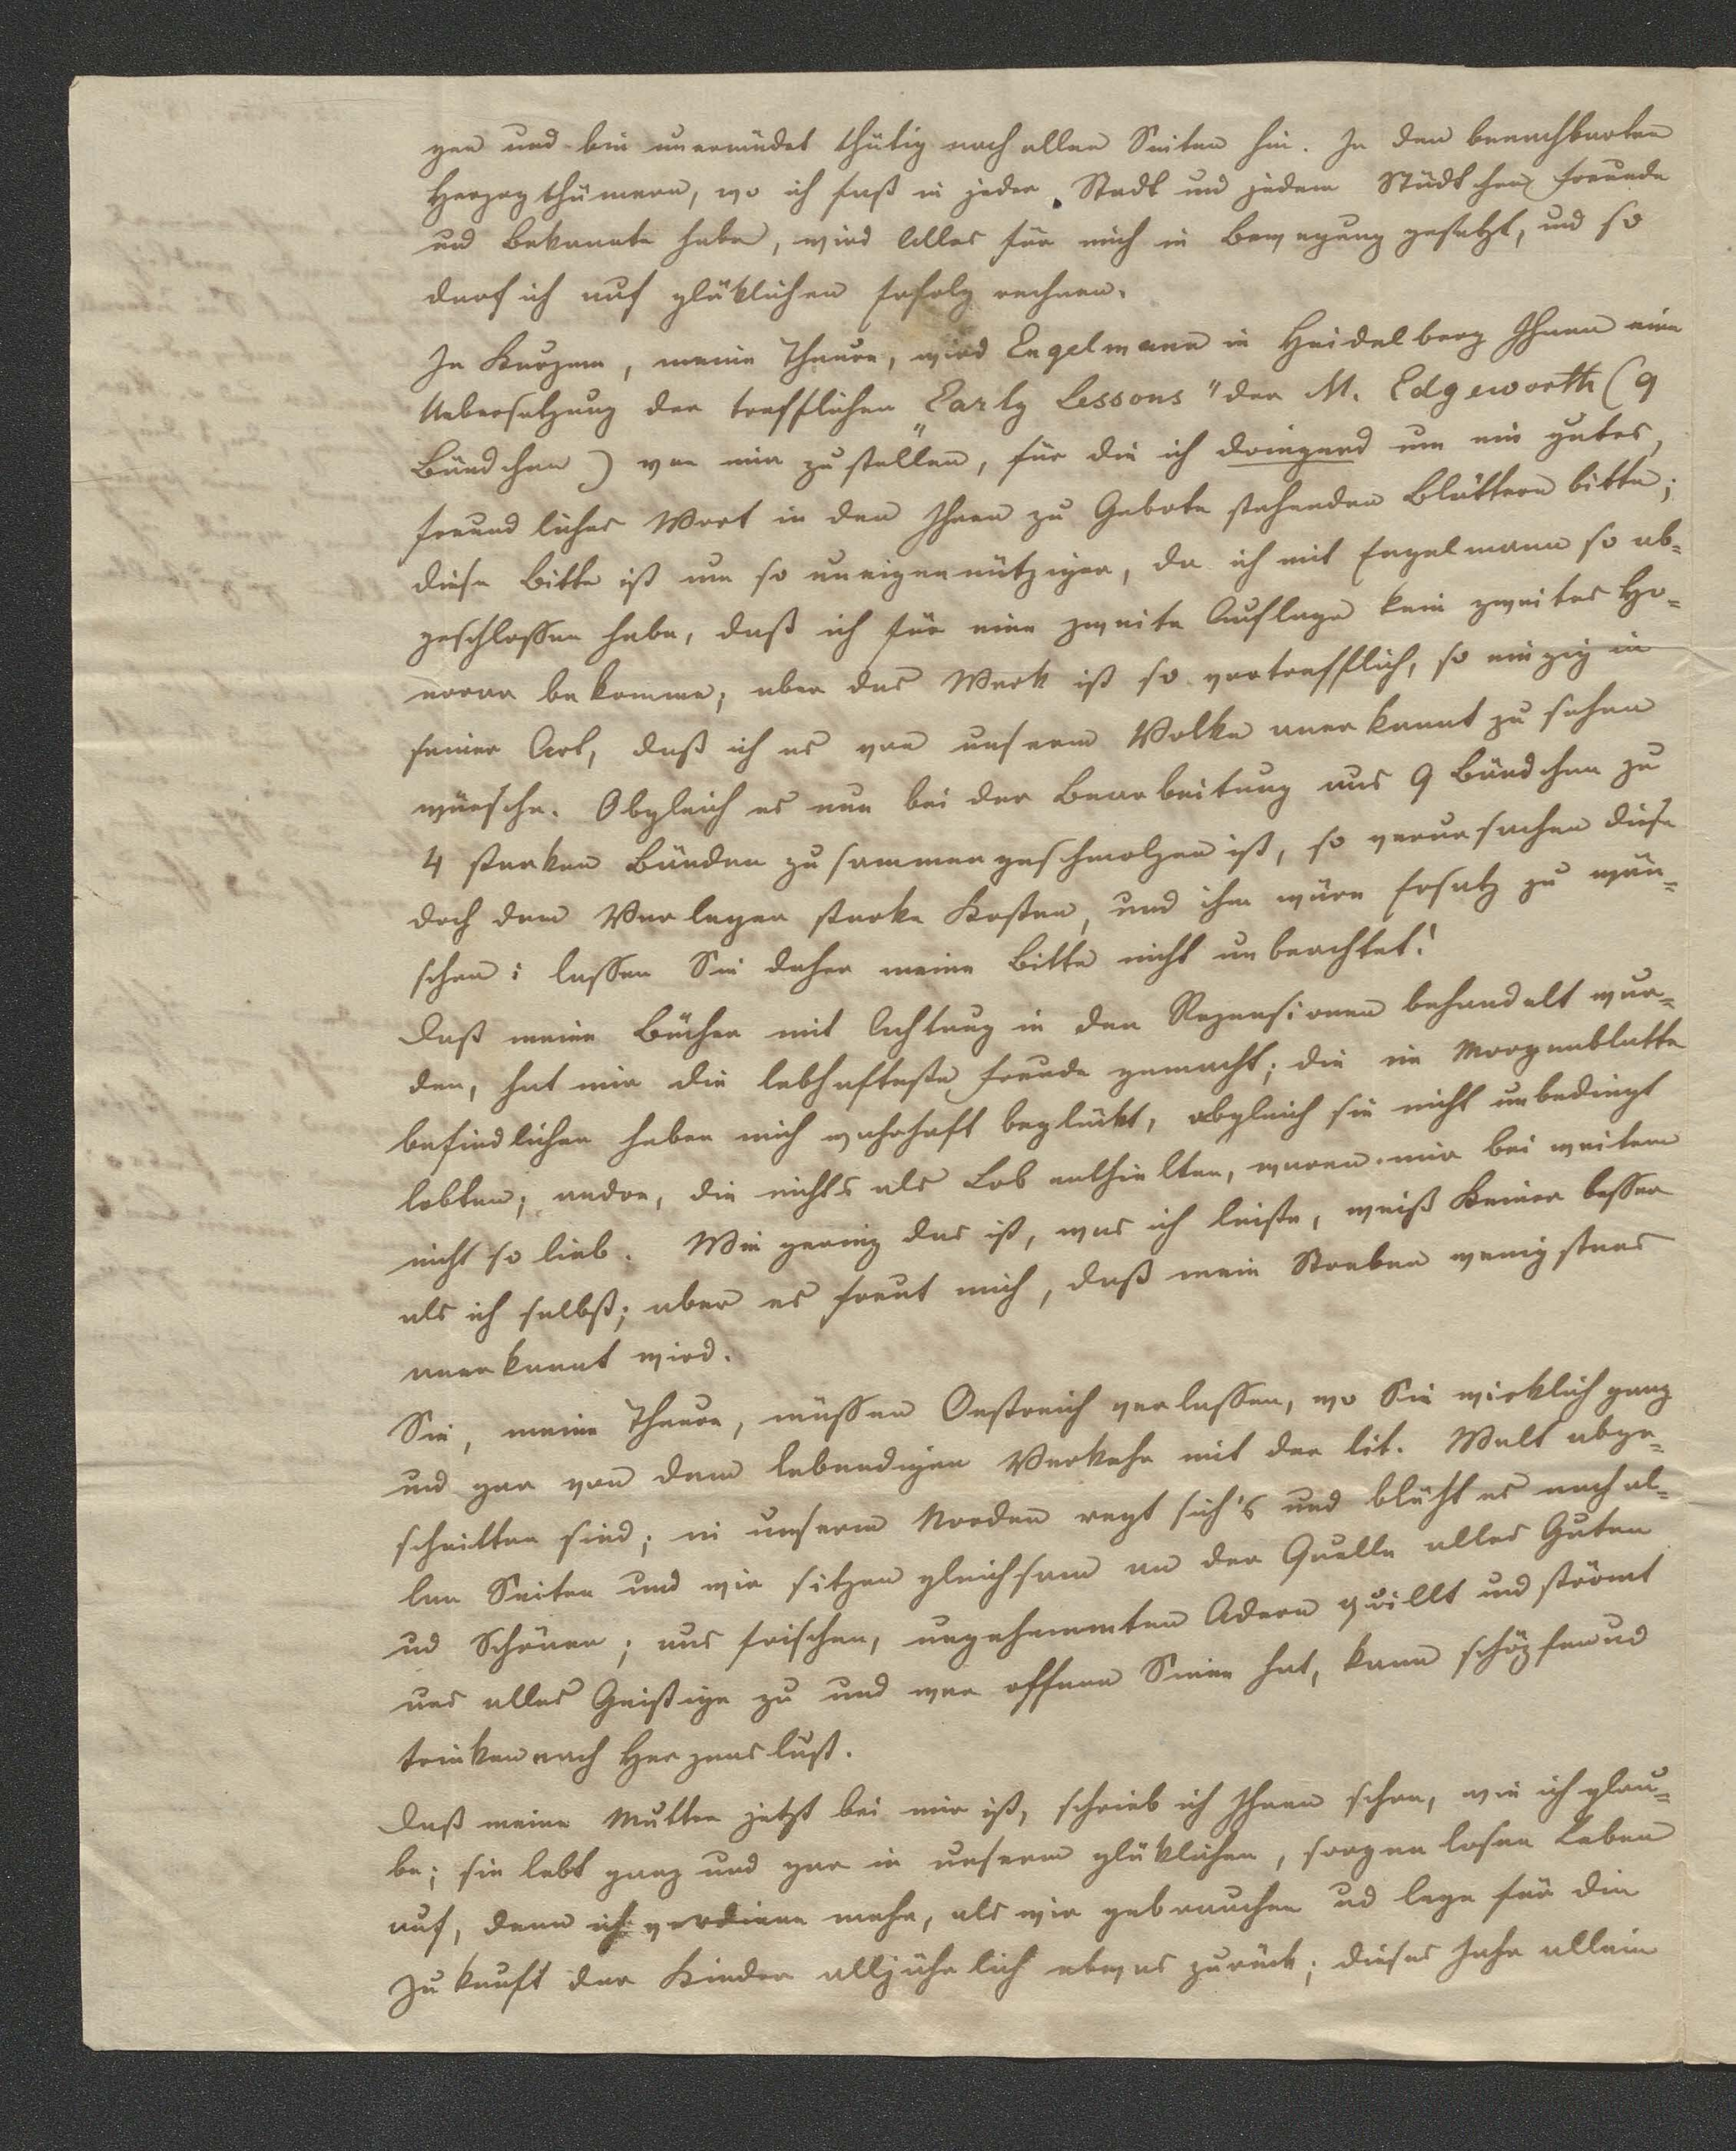 gen und bin unermüdet thätig nach allen Seiten hin. In den benachbarten
Herzogthümern, wo ich fast in jeder Stadt und jedem Städtchen Freunde
und Bekannte habe, wird Alles für mich in Bewegung gesetzt, und so
darf ich auf glüklichen Erfolg rechnen.
In Kurzem, meine Theure, wird Engelmann in Heidelberg Ihnen eine
Uebersetzung der trefflichen „Early Lessons" der M. Edgeworth (9
Bändchen) von mir zustellen, für die ich dringend um ein gutes,
freundliches Wort in den Ihnen zu Gebote stehenden Blättern bitte;
diese Bitte ist um so uneigennütziger, da ich mit Engelmann so ab=
geschlossen habe, daß ich für eine zweite Auflage kein zweites Ho=
norar bekomme; aber das Werk ist so vortrefflich, so einzig in
seiner Art, daß ich es von unserm Volke anerkannt zu sehen
wünsche. Obgleich es nun bei der Bearbeitung aus 9 Bändchen zu
4 starken Bänden zusammengeschmolzen ist, so verursachen diese
doch dem Verleger starke Kosten, und ihm wäre Ersatz zu wün=
schen: lassen Sie daher meine Bitte nicht unbeachtet!
Daß meine Bücher mit Achtung in den Rezensionen behandelt wur=
den, hat mir die lebhafteste Freude gemacht; die im Morgenblatte
befindlichen haben mich wahrhaft beglükt, obgleich sie nicht unbedingt
lobten; andre, die nichts als Lob enthielten, waren mir bei weitem
nicht so lieb. Wie gering das ist, was ich leiste, weiß Keiner besser
als ich selbst; aber es freut mich, daß mein Streben wenigstens
anerkannt wird.
Sie, meine Theure, müssen Oestreich verlassen, wo Sie wirklich ganz
und gar von dem lebendigen Verkehr mit der lit. Welt abge=
schnitten sind; in unserm Norden regt sich's und blüht es nach al=
len Seiten und wir sitzen gleichsam an der Quelle alles Guten
ud Schönen; aus frischen, ungehemmten Adern quillt und strömt
uns alles Geistige zu und wer offnen Sinn hat, kann schöpfen ud
trinken nach Herzenslust.
Daß meine Mutter jetzt bei mir ist, schrieb ich Ihnen schon, wie ich glau=
be; sie lebt ganz und gar in unserm glüklichen, sorgenlosen Leben
auf, denn ich verdiene mehr, als wir gebrauchen ud lege für die
Zukunft der Kinder alljährlich etwas zurück; dieses Jahr allein